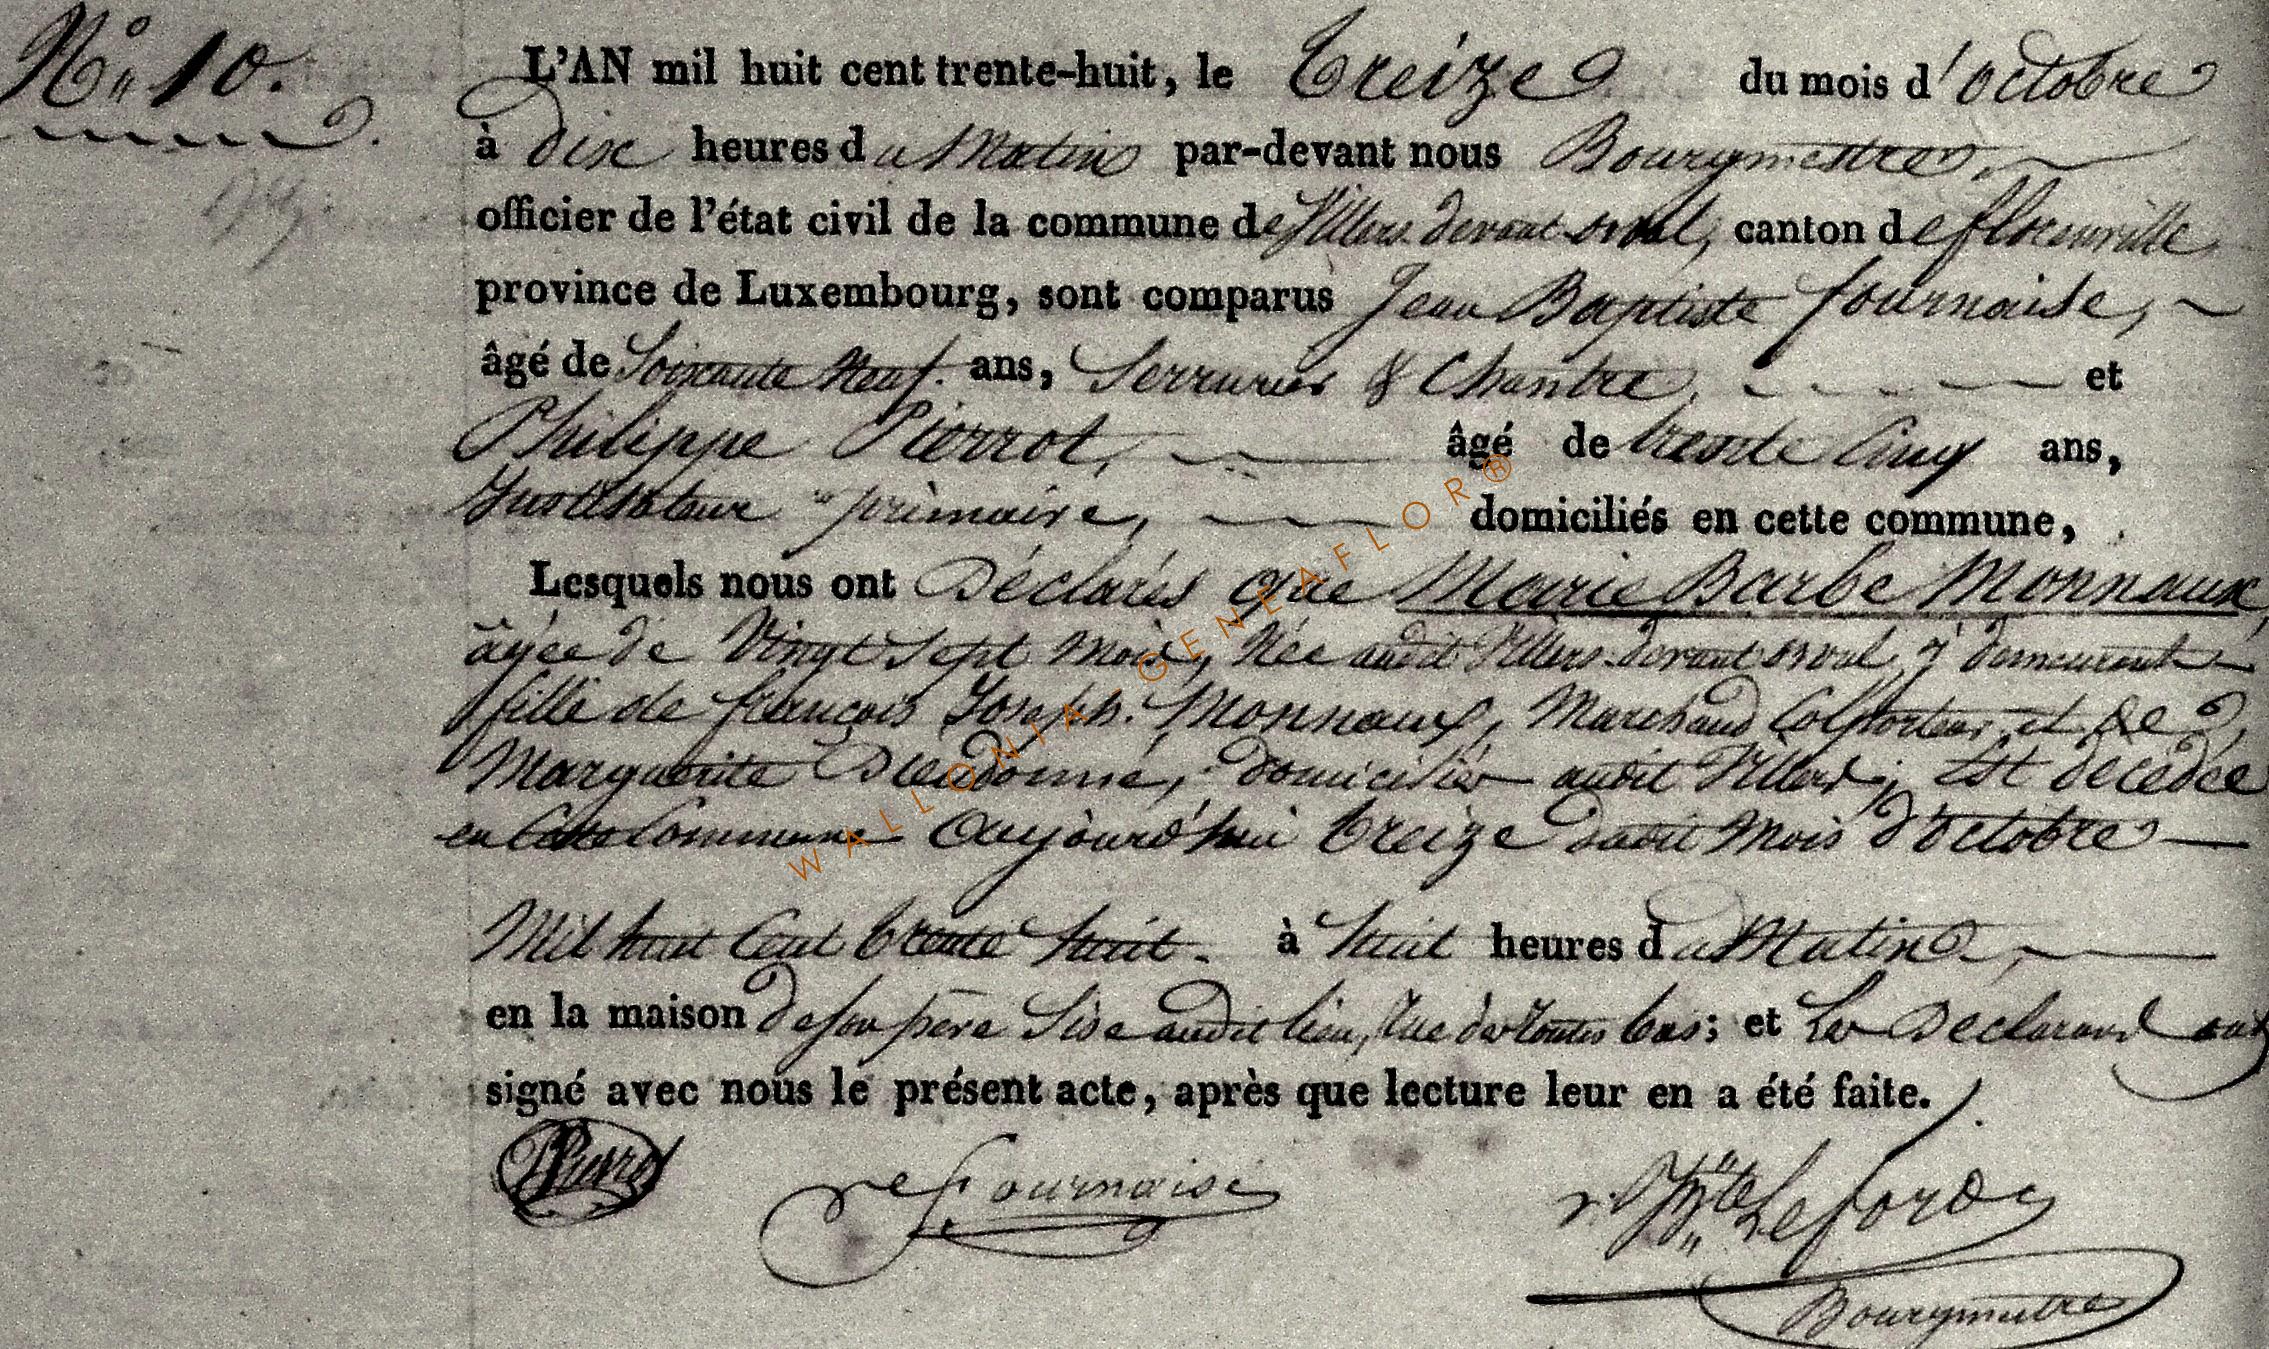 N° 10.
L'AN mil huit cent trente-huit, le treize du mois d'octobre
à dix heures du Matin par-devant nous Bourgmestre,
officier de l'état civil de la commune de Villers devant orval, canton de florenville
province de Luxembourg, sont comparus Jean Baptiste fournaise,
âgé de Soixante Neuf ans, Serrurier & Chantre, et
Philippe Pierrot, âgé de trente Cinq ans,
Instituteur primaire, domiciliés en cette commune,
Lesquels nous ont Déclarés que Marie Barbe Monnaux,
âgée de Vingt Sept Mois, Née audit Villers devant orval, y demeurant
fille de françois Joseph Monnaux, Marchand Colporteur et de
Marguerite Dieudonné, domiciliés audit Villers; Est décédée
en Cette Commune Aujourd'hui treize dudit Mois d'octobre
Mil huit Cent trente huit. à huit heures du Matin,
en la maison de son père Sise audit lieu, Rue des bas; et Les Déclarans ont
signé avec nous le présent acte, après que lecture leur en a été faite.
Pierrot
fournaise
Lefort
Bourgmestre
WALLONIA GENEAFLOR®